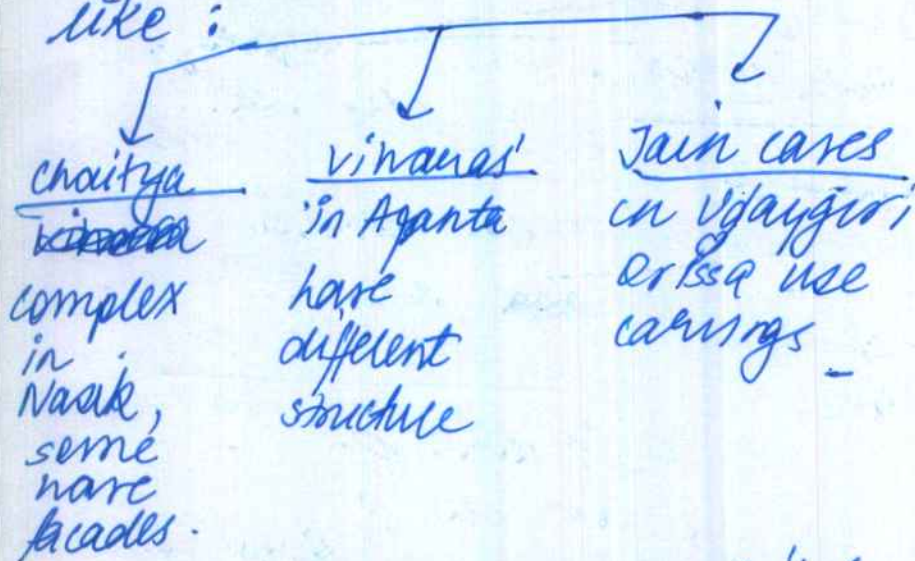 like :
chaitya
complex
in
Nasik,
some
have
facades.
viharas'
in Ajanta
have
different
structure
Jain caves
in Udaygiri,
Orissa use
carvings